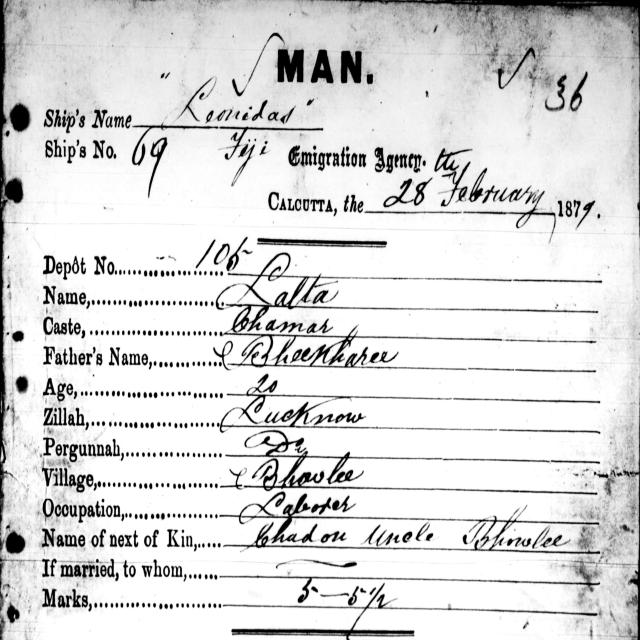 MAN.
36
Ship's Name "Leonidas"
Ship's No. 69 Fiji Emigration Agency.
CALCUTTA, the 28th February 1879.
Depôt No. 105
Name, Lalta
Caste, Chamar
Father's Name, Bheekharee
Age, 20
Zillah, Lucknow
Pergunnah, Do
Village, Bhowlee
Occupation, Laborer
Name of next of Kin, Chadon Uncle Bhowlee
If married, to whom, —
Marks, 5—5½